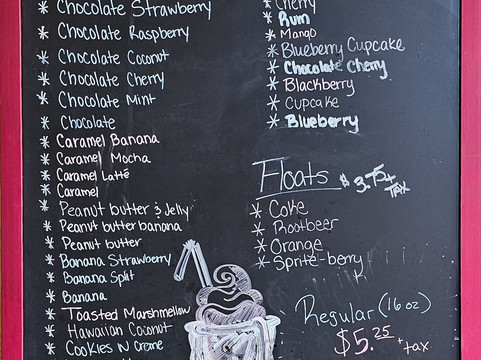 * Chocolate Strawberry
* Chocolate Raspberry
* Chocolate Coconut
* Chocolate Cherry
* Chocolate Mint
* Chocolate
* Caramel Banana
* Caramel Mocha
* Caramel Latté
* Caramel
* Peanut butter & Jelly
* Peanut butter banana
* Peanut butter
* Banana Strawberry
* Banana Split
* Banana
* Toasted Marshmellow
* Hawaiian Coconut
* Cookies N Creme
* Cherry
* Rum
* Mango
* Blueberry Cupcake
* Chocolate Cherry
* Blackberry
* Cupcake
* Blueberry
Floats $3.75 + TAX
* Coke
* Rootbeer
* Orange
* Sprite-berry
Regular (16 oz)
$5.25 + tax